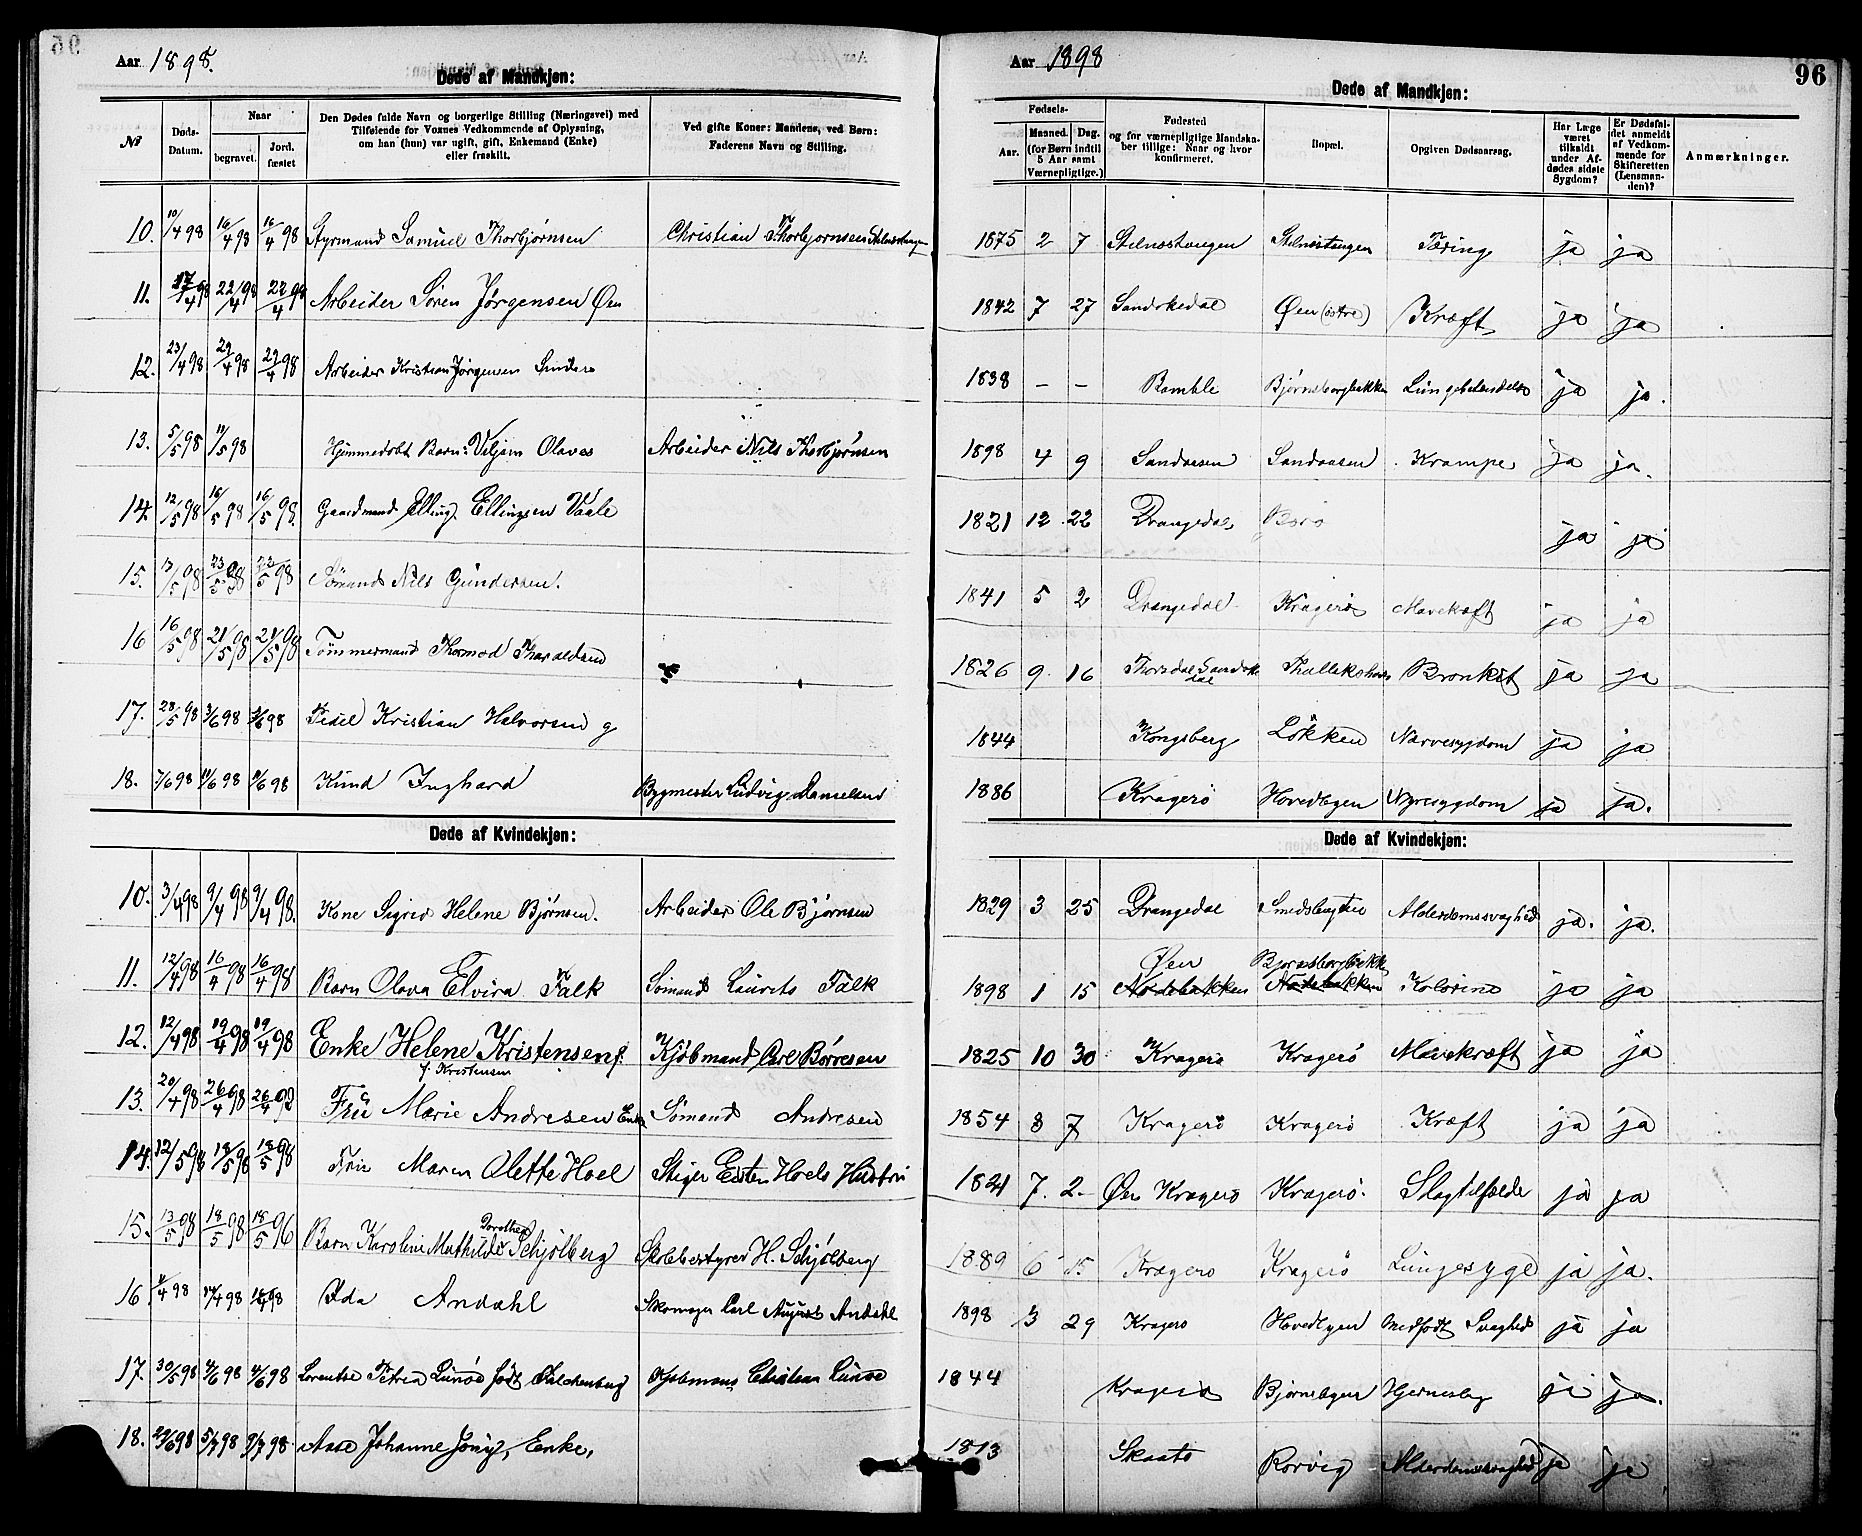 Aar 1898.
Døde af Mandkjøn:
№ Døds-Datum. Naar begravet. Jord. fæstet Den Dødes fulde Navn og borgerlige Stilling (Næringsvei) med Tilføiende for Voxnes Vedkommende af Oplysning, om han (hun) var ugift, gift, Enkemand (Enke) eller fraskilt. Ved gifte Koner: Mandens, ved Børn: Faderens Navn og Stilling.
10. 10/4 98 16/4 98 16/4 98 Styrmand Samuel Thorbjørnsen Christian Thorbjørnsen
11. 17/4 98 22/4 98 22/4 98 Arbeider Søren Jørgensen Øen
12. 23/4 98 29/4 98 29/4 98 Arbeider Kristian Jørgensen
13. 5/5 98 11/5 98 Hjemmedøbt Barn: Viljam Olaves Arbeider Nils Thorbjørnsen
14. 12/5 98 16/5 98 16/5 98. Gaardmand Elling Ellingsen Vaale
15. 13/5 98 23/5 98 23/5 98 Sømand Nils Gundersen.
16 16/5 98 21/5 98 21/5 98 Tømmermand Thormod Tharaldsen
17. 28/5 98 3/6 98 3/6 98 Kristian Halvorsen g
18. 7/6 98 11/6 98 11/6 98 Knud Inghard Bygmester Ludvig Danielsen
Døde af Kvindekjøn:
10. 3/4 98 9/4 98 9/4 98. Kone Sigrid Helene Bjørnsen. Arbeider Ole Bjørnsen
11. 12/4 98 16/4 98 16/4 98 Barn Olava Elvira Falk Sømand Laurits Falk
12. 12/4 98 19/4 98 19/4 98 Enke Helene Kristensen f. Kjøbmand Carl Børresen
f. Kristensen
13. 20/4 98 26/4 98 26/4 92 Fru Marie Andresen Enke Sømand Andresen
14. 12/5 98 18/5 98 18/5 98 Fru Maren Olette Hoel Stiger Hoels Hustru
Dorothea
15. 13/5 98 18/5 98 18/5 96 Barn Karoline Mathilde Schjølberg Skolebestyrer H. Schjølberg
16 98 98 98 Ida Andahl Skomager Carl August Andahl
17. 30/5 98 4/6 98 4/6 98 Lorentse Petrea Lunøe født Falckenberg Kjøbmand Christian Lunøe
18. 29/6 98 5/7 98 9/7 98 Aase Johanne Enke,
Aar 1898
Døde af Mandkjøn:
96
Fødsels-Aar. Maaned. Dag. (for Børn indtil 5 Aar samt Værnepligtige.) Fødested og for værnepligtige Mandskaber tillige: Naar og hvor konfirmeret. Bopæl. Opgiven Dødsaarsag. Har Læge været tilkaldt under Afdødes sidste Sygdom? Er Dødsfaldet anmeldt af Vedkommende for Skifteretten (Lensmanden)? Anmærkninger.
1875 2 7 Stilnestangen Stilnestangen Tæring ja ja
1842 7 27 Sandøkedal Øen (østre) Kræft ja ja
1838 - - Bamble Bjørnsborgbakken Lungebetændelse ja ja.
1898 4 9 Sandaasen Sandaasen Krampe ja ja.
1821 12 22 Drangedal ja ja
1841 5 2 Drangedal Kragerø Mavekræft ja ja
1826 9 16 Bronkit ja ja
1844 Kongsberg Løkken Nervesygdom ja ja
1886 Kragerø Hovedbyen Nyresygdom ja ja.
Døde af Kvindekjøn:
1829 3 25 Drangedal Smedsbugten Alderdomssvaghed ja. ja.
Øen Bjørnsborgbakk
1898 1 15 Nødebakken Nødebakken Kolerine ja ja
1825 10 30 Kragerø Kragerø Mavekræft ja ja
1854 8 7 Kragerø Kragerø Kræft ja ja
1821 7. 2. Øen Kragerø Kragerø. Slagtilfælde ja ja
1889 6 15 Kragerø Kragerø Lungesyge ja ja.
1898 3 29 Kragerø Hovedbyen Medfødt Svaghed ja ja
1844 Kragerø Bjørnsbyen ja ja.
1813 Skaatø Rørvig Alderdomssvaghed ja ja